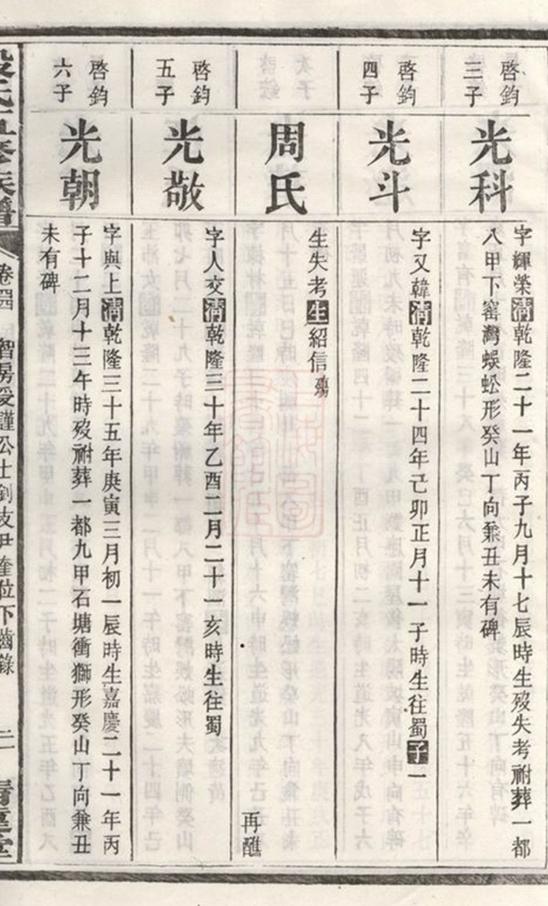 啓鈞
三子
光科
字輝榮清乾隆二十一年丙子九月十七辰時生歿失考祔葬一都
八甲下窰灣蜈蚣形癸山丁向兼丑未有碑
啓鈞
四子
光斗
字又韓清乾隆二十四年己卯正月十一子時生往蜀子一
周氏
生失考生紹信殤
再醮
啓鈞
五子
光敬
字人交清乾隆三十年乙酉二月二十一亥時生往蜀
啓鈞
六子
光朝
字與上清乾隆三十五年庚寅三月初一辰時生嘉慶二十一年丙
子十二月十三午時歿祔葬一都九甲石塘衝獅形癸山丁向兼丑
未有碑
氏五修族譜
卷四 智房受謹公仕釗支尹奎位下齒錄
二
堂